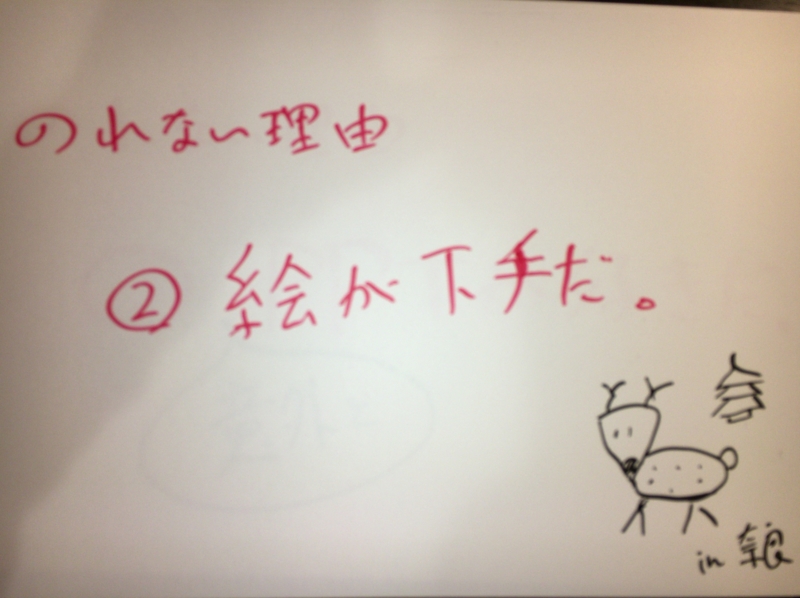 のれない理由
② 絵が下手だ。
in 奈良